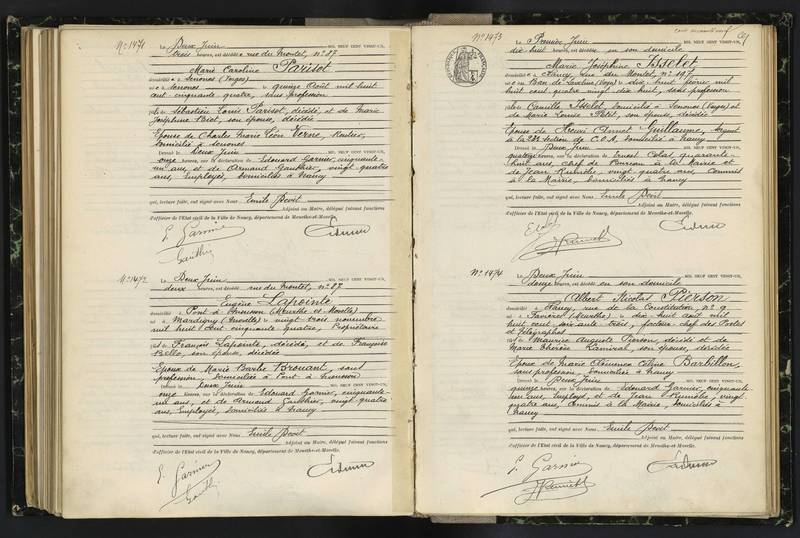 No 1471
Le Deux Juin MIL NEUF CENT VINGT-UN,
trois heures, est décédée rue du Montet, no 87
Marie Caroline Parisot
domiciliée à Senones (Vosges)
née à Senones quinze Août mil huit
cent cinquante quatre, sans profession
fille de Sébastien Louis Parisot, décédé, et de Marie
Joséphine, son épouse, décédée
Epouse de Charles Marie Léon Verne,
domicilié à Senones
Dressé le Deux Juin MIL NEUF CENT VINGT-UN,
onze heures, sur la déclaration de Edouard Garnier, cinquante
un ans, et de Armand Gauthier, vingt quatre
ans, Employés, domiciliés à Nancy
qui, lecture faite, ont signé avec Nous Emile
Adjoint au Maire, délégué faisant fonctions
d'officier de l'Etat civil de la Ville de Nancy, département de Meurthe-et-Moselle.
E. Garnier
Gauthier
No 1472
Le Deux Juin MIL NEUF CENT VINGT-UN,
deux heures, est décédé rue du Montet, no 87.
Eugène Lapointe
domicilié à Pont à Mousson (Meurthe et Moselle)
né à (Moselle) vingt trois novembre
mil huit cent cinquante quatre, Propriétaire
fils de François Lapointe, décédé, et de Françoise
son épouse, décédée
Epoux de Marie Barbe Brouant, sans
profession, domiciliée à Pont à Mousson
Dressé le Deux Juin MIL NEUF CENT VINGT-UN,
onze heures, sur la déclaration de Edouard Garnier, cinquante
un ans, et de Armand Gauthier, vingt quatre
ans, Employés, domiciliés à Nancy
qui, lecture faite, ont signé avec Nous Emile
Adjoint au Maire, délégué faisant fonctions
d'officier de l'Etat civil de la Ville de Nancy, département de Meurthe-et-Moselle.
E. Garnier
Gauthier
No 1473
Le Premier Juin MIL NEUF CENT VINGT-UN,
dix huit heures, est décédée en son domicile
Marie Joséphine Isselet
domiciliée à Nancy, rue du Montet, no 197
née à Ban de Laveline (Vosges) dix huit février mil
huit cent quatre vingt dix huit, sans profession
fille de Camille Isselet, domicilié à Senones (Vosges) et
de Marie Louise Petit, son épouse, décédée
Epouse de Henri Guillaume, Sergent
à la 23e Section de C.O.A, domicilié à Nancy
Dressé le Deux Juin MIL NEUF CENT VINGT-UN,
quatorze heures, sur la déclaration de Ernest Colat, quarante
huit ans, chef de Bureau à la Mairie et
de Jean, vingt quatre ans, Commis
à la Mairie, domiciliés à Nancy
qui, lecture faite, ont signé avec Nous Emile
Adjoint au Maire, délégué faisant fonctions
d'officier de l'Etat civil de la Ville de Nancy, département de Meurthe-et-Moselle.
No 1474
Le Deux Juin MIL NEUF CENT VINGT-UN,
douze heures, est décédé en son domicile
Albert Nicolas Pierson
domicilié à Nancy, rue de la Constitution, no 9
né à (Meurthe) dix Août mil
huit cent soixante treize, facteur chef des Postes
et Télégraphes
fils de Maurice Auguste Pierson, décédé et de
Marie Thérèse, son épouse, décédée
Epoux de Marie Clémence Céline Barbillon,
sans profession, domiciliée à Nancy
Dressé le Deux Juin MIL NEUF CENT VINGT-UN,
quinze heures, sur la déclaration de Edouard Garnier, cinquante
un ans, Employé, et de Jean, vingt
quatre ans, Commis à la Mairie, domiciliés à
Nancy
qui, lecture faite, ont signé avec Nous Emile
Adjoint au Maire, délégué faisant fonctions
d'officier de l'Etat civil de la Ville de Nancy, département de Meurthe-et-Moselle.
E. Garnier